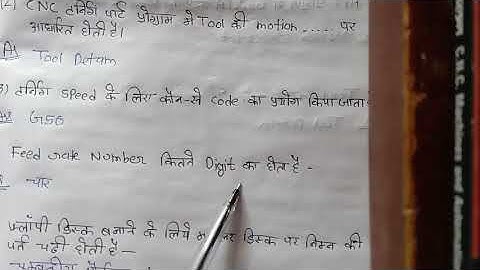 2) CNC टर्निंग पार्ट प्रोग्राम में Tool की motion ...... पर
आधारित होती है।
A) Tool Detum
3) टर्निंग speed के लिए कौन-से code का प्रयोग किया जाता
G50
Feed rate Number कितने Digit का होता है -
चार
फ्लॉपी डिस्क बनाने के लिये डिस्क पर निम्न की
पर्त चढ़ी होती है -
C.N.C. Machines and